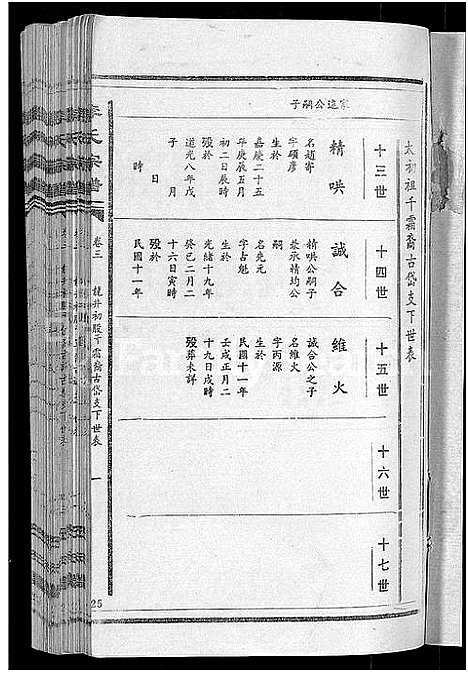 太初祖千霜裔古岱支下世表
十三世
十四世
十五世
十六世
十七世
家進公嗣子
精哄
名趙寄
字碩彥
生於
嘉慶二十五
年庚辰五月
初二日辰時
歿於
道光八年戊
子 月
日
時
誠合
精哄公嗣子
兼承精均公
嗣
名堯元
字古魁
生於
光緒十九年
癸巳二月二
十六日寅時
歿於
民國十一年
維火
誠合公之子
名維火
字丙源
生於
民國十一年
壬戌正月二
十九日戌時
歿葬未詳
李氏宗譜
卷三
龍井初股千霜裔古岱支下世表
一
25